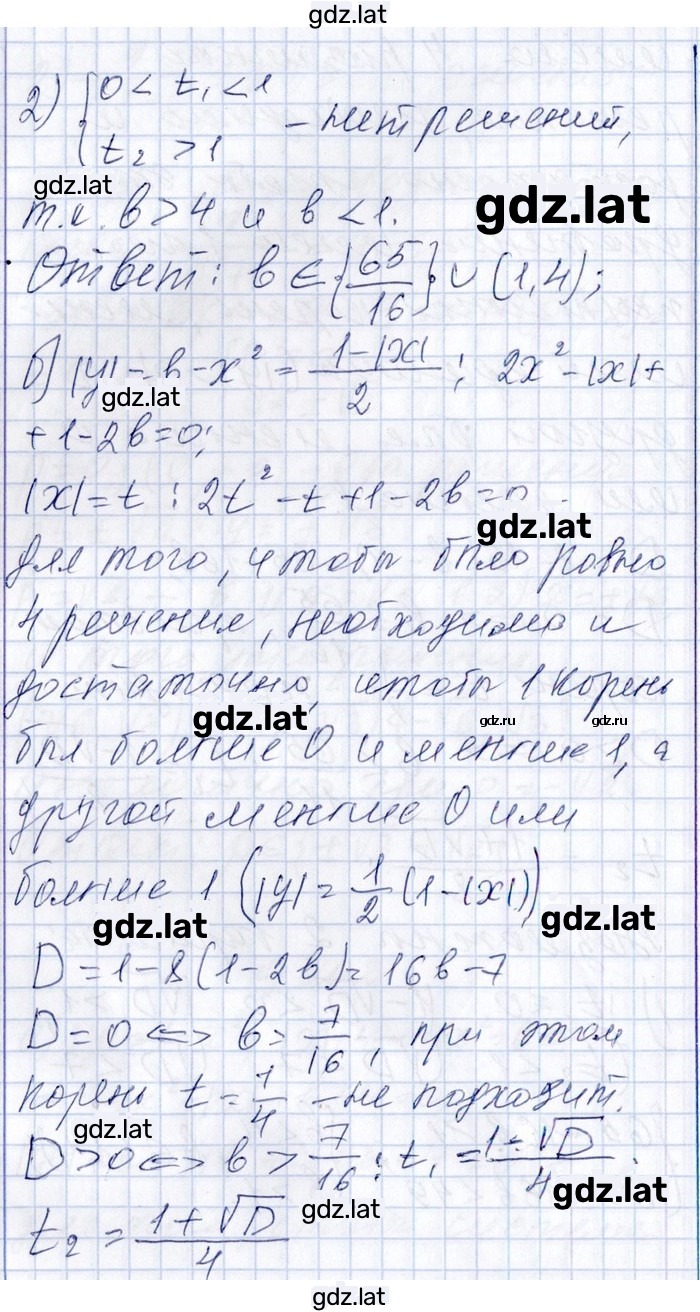 gdz.lat
2) { 0 < t₁ < 1
t₂ > 1 – нет решений,
gdz.lat
т.к. b > 4 и b < 1.
gdz.lat
Ответ: b ∈ {65/16} ∪ (1,4);
б) |y| = b - x² = (1-|x|)/2 ; 2x² - |x| +
gdz.lat
+ 1 - 2b = 0;
|x| = t ; 2t² - t + 1 - 2b = 0
gdz.lat
для того, чтобы было ровно
4 решения, необходимо и
достаточно, чтобы 1 корень
gdz.lat gdz.ru gdz.ru
был больше 0 и меньше 1, а
другой меньше 0 или
больше 1 (|y| = 1/2 (1-|x|))
gdz.lat gdz.lat
D = 1 - 8(1-2b) = 16b - 7
D = 0 <=> b = 7/16, при этом
корень t = 1/4 – не подходит.
gdz.lat
D > 0 <=> b > 7/16 ; t₁ = (1-√D)/4 .
gdz.lat
t₂ = (1+√D)/4
gdz.lat
gdz.lat